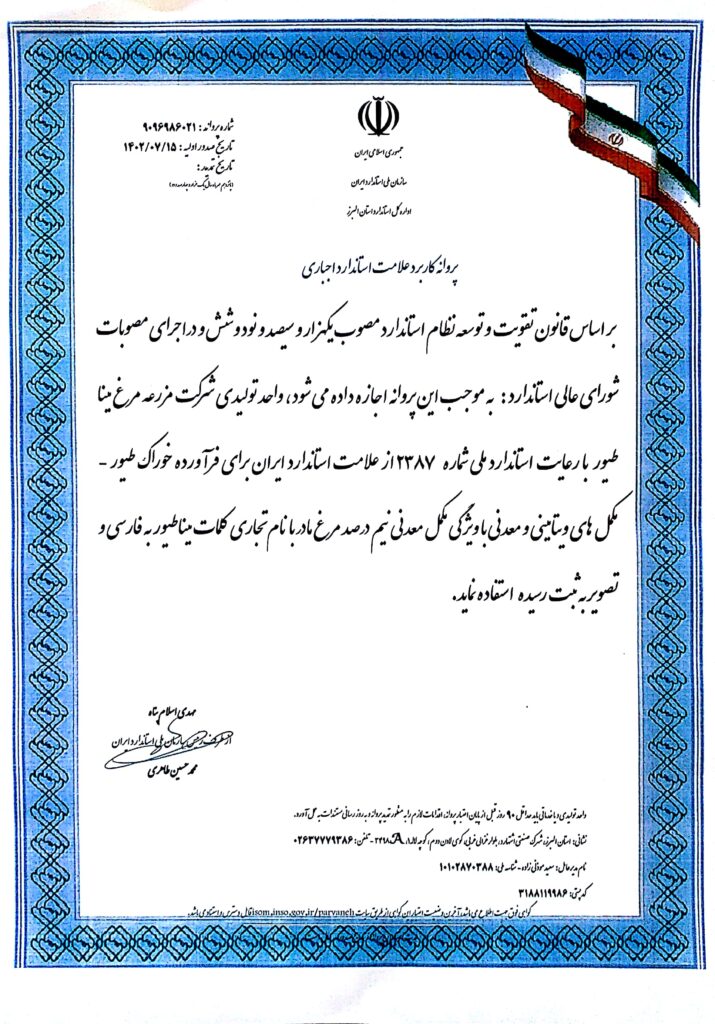 جمهوری اسلامی ایران
سازمان ملی استاندارد ایران
اداره کل استاندارد استان البرز
شماره پروانه: ۹۰۹۶۹۸۶۰۲۱
تاریخ صدور اولیه: ۱۴۰۲/۰۷/۱۵
تاریخ تمدید:
پروانه کاربرد علامت استاندارد اجباری
بر اساس قانون تقویت و توسعه نظام استاندارد مصوب یکهزار و سیصد و نود و شش و در اجرای مصوبات
شورای عالی استاندارد: به موجب این پروانه اجازه داده می شود، واحد تولیدی شرکت مزرعه مرغ مینا
طیور با رعایت استاندارد ملی شماره ۲۳۸۷ از علامت استاندارد ایران برای فرآورده خوراک طیور -
مکمل های ویتامینی و معدنی با ویژگی مکمل معدنی نیم درصد مرغ مادر با نام تجاری کلمات مینا طیور به فارسی و
تصویر به ثبت رسیده استفاده نماید.
مهدی اسلام پناه
از طرف رییس سازمان ملی استاندارد ایران
محمد حسین طاهری
واحد تولیدی و یا خدماتی باید حداقل ۹۰ روز قبل از پایان اعتبار پروانه، اقدامات لازم را به منظور تمدید پروانه و به روز رسانی مستندات به عمل آورد.
نشانی: استان البرز، شهرک صنعتی اشتهارد، بلوار غزالی غربی، کوی لادن دوم، کوچه لاله۸، ۲۴۹۸A - تلفن: ۰۲۶۳۷۷۷۹۳۸۶
نام مدیر عامل: سعید - شناسه ملی: ۱۰۱۰۲۸۷۰۳۸۸
کد پستی: ۳۱۸۸۱۱۹۹۸۶
گواهی فوق جهت اطلاع می باشد، آخرین وضعیت اعتبار این گواهی از طریق سایت isom.inso.gov.ir/parvaneh قابل دسترس و استناد می باشد.